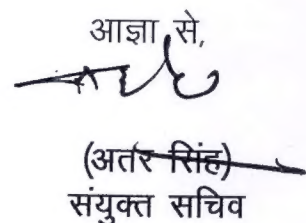 आज्ञा से,
(अतर सिंह)
संयुक्त सचिव